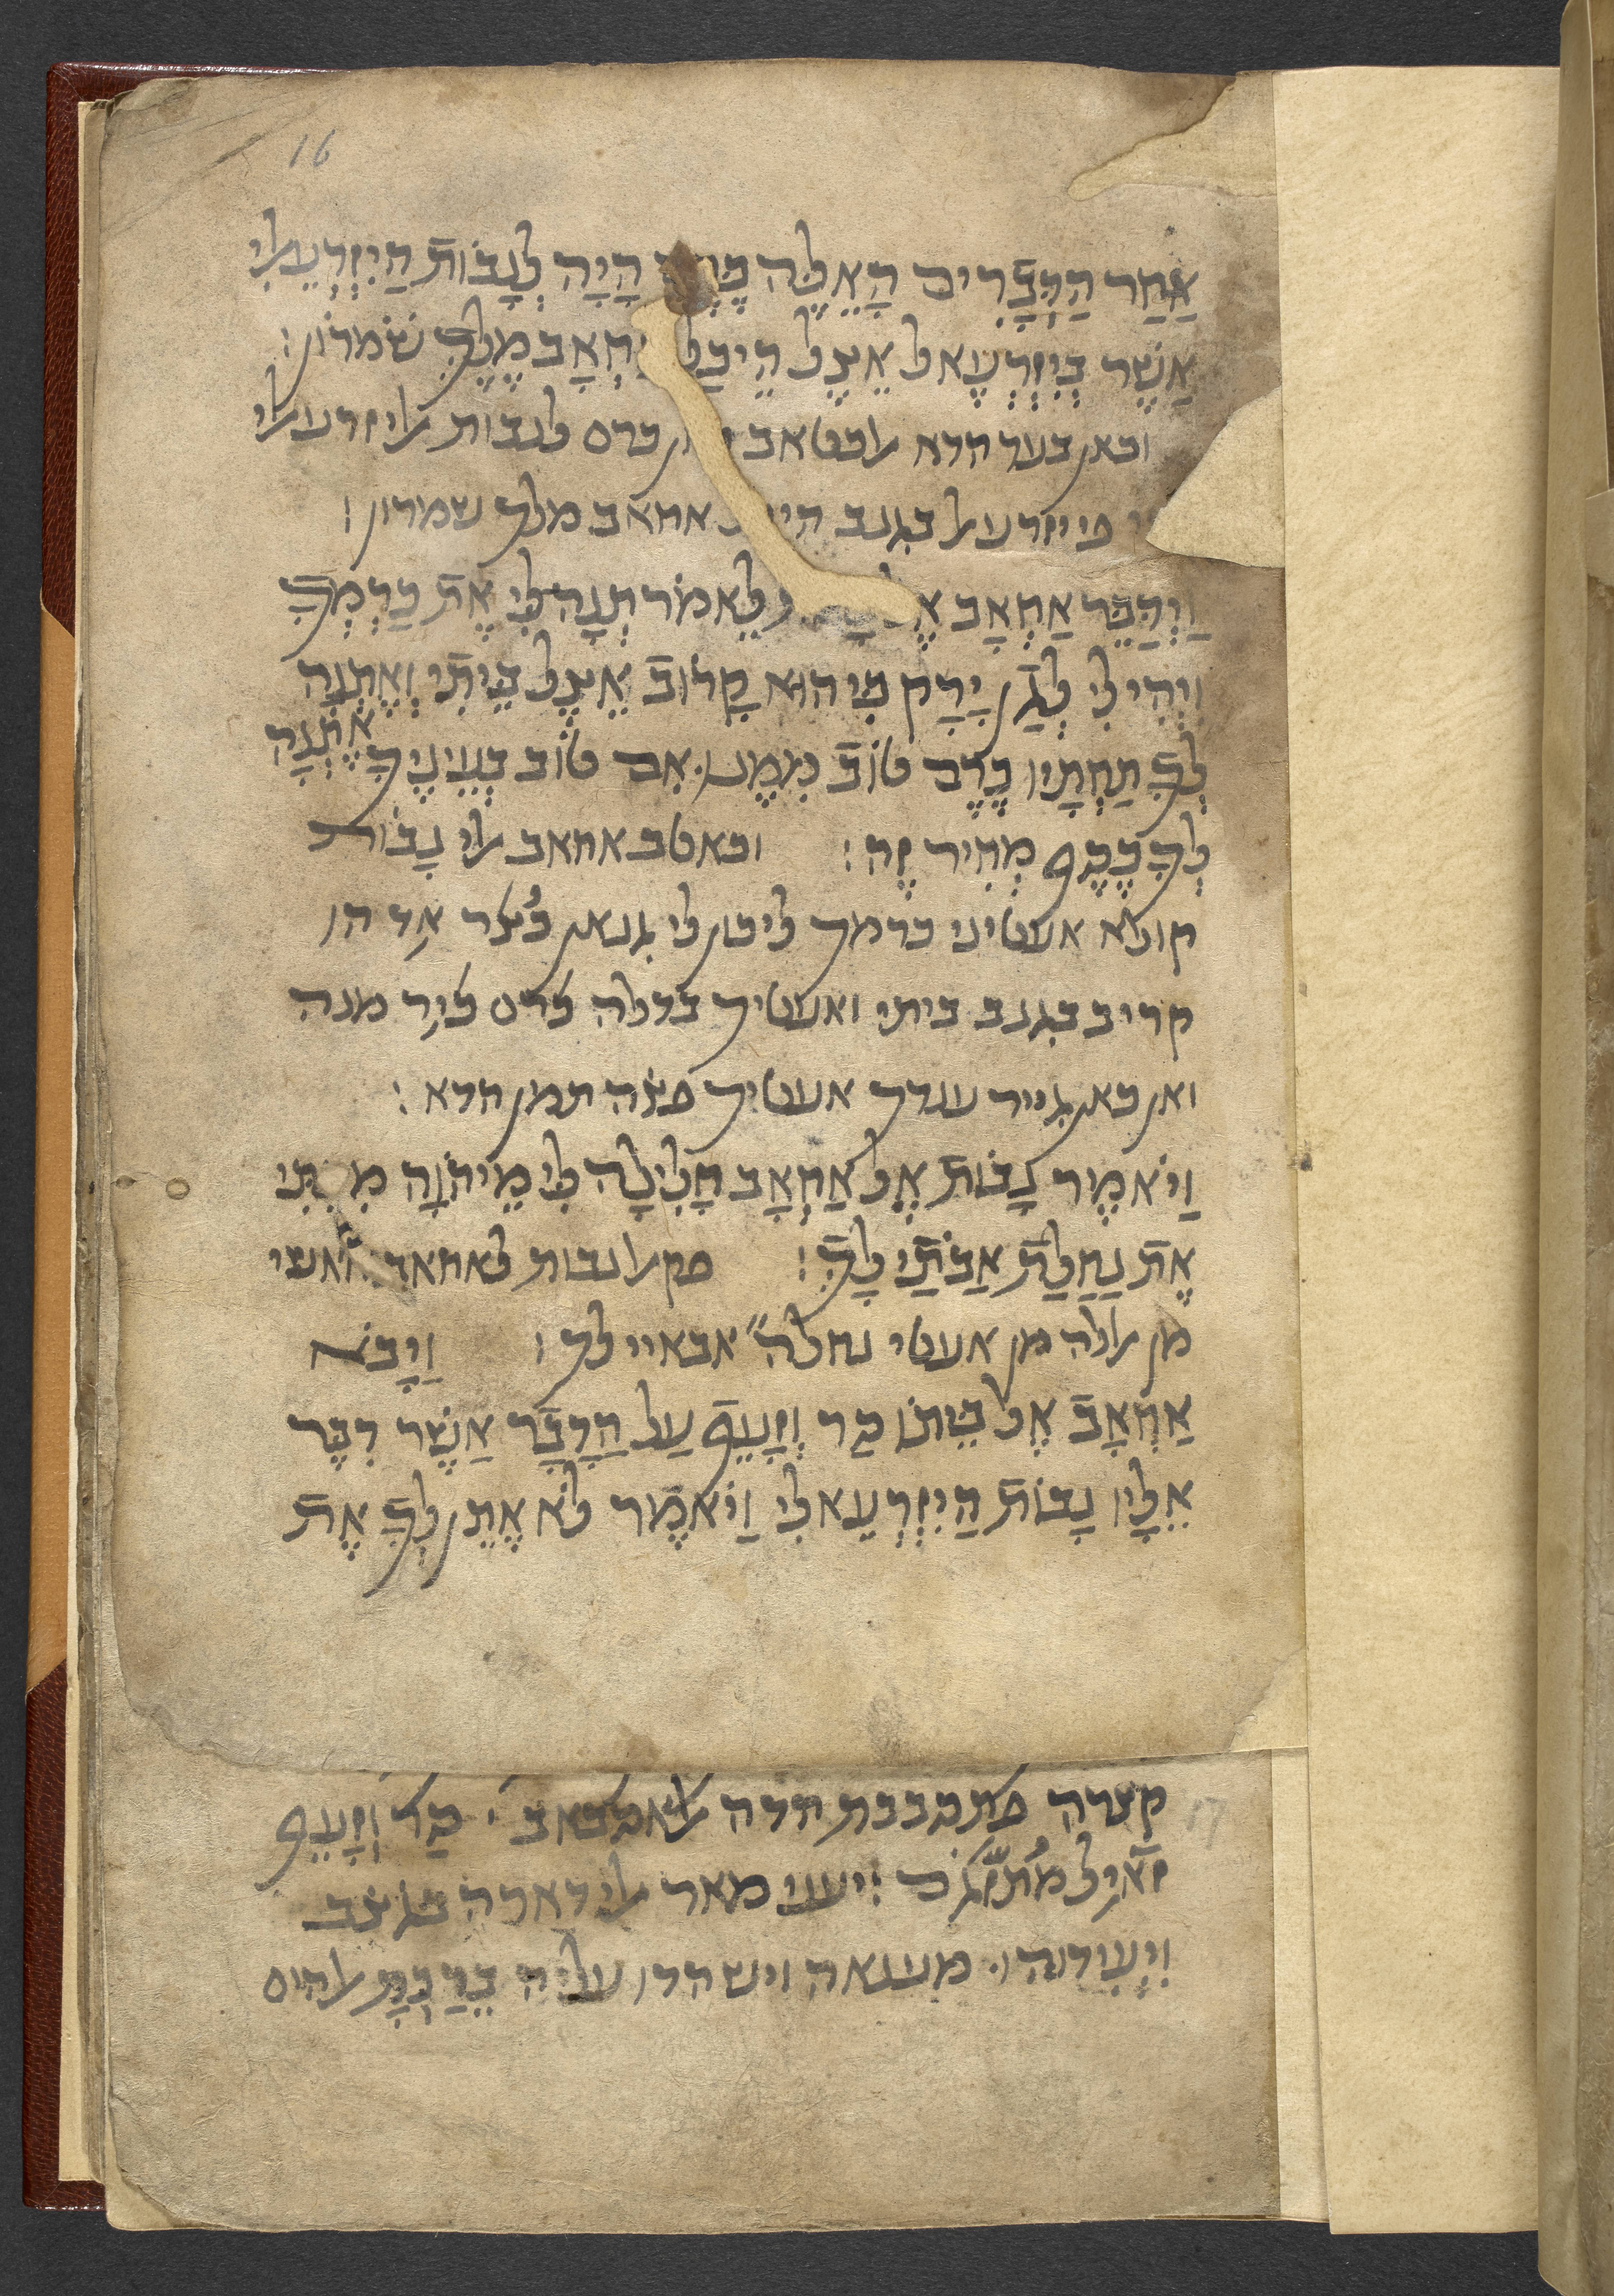 16
אַחַר הַדְּבָרִים הָאֵלֶּה כֶּרֶם הָיָה לְנָבוֹת הַיִּזְרְעֵאלִי
אֲשֶׁר בְּיִזְרְעֶאל אֵצֶל הֵיכַל אַחְאָב מֶלֶךְ שֹׁמְרוֹן׃
וכאן בעד הדא אלכטאב כרם לנבות אליזרעאלי
פי יזרעאל בגנב אחאב מלך שמרון׃
וַיְדַבֵּר אַחְאָב לֵאמֹר תְּנָה לִּי אֶת כַּרְמְךָ
וִיהִי לִי לְגַן יָרָק כִּי הוּא קָרוֹב אֵצֶל בֵּיתִי וְאֶתְּנָה
לְךָ תַּחְתָּיו כֶּרֶם טוֹב מִמֶּנּוּ. אִם טוֹב בְּעֵינֶיךָ אֶתְּנָה
לְךָ כֶסֶף מְחִיר זֶה׃ וכאטב אחאב אלי נָבוֹת
קולא אעטיני כרמך ליכון לי גנאן כֻצר אִד הו
קריב בגנב ביתי ואעטיך בדלה כרם כיִר מנה
ואן כאן גייד ענדך אעטיך פצה תמן הדא׃
וַיֹּאמֶר נָבוֹת אֶל אַחְאָב חָלִילָה לִּי מֵיהוָה מִתִּתִּי
אֶת נַחֲלַת אֲבֹתַי לָךְ׃ פקאל נבות לאחאב
מן אללה מן אעטי נחלה אבאיי לך׃ וַיָּבֹא
אַחְאָב אֶל בֵּיתוֹ סַר וְזָעֵף עַל הַדָּבָר אֲשֶׁר דִּבֶּר
אֵלָיו נָבוֹת הַיִּזְרְעֵאלִי וַיֹּאמֶר לֹא אֶתֵּן לְךָ אֶת
17
קצרה פתכבבת הדה אלאסבאב סַר וְזָעֵף
זאיל יעני מאר אלי דארה בגצב
וִיעִידֻהוּ. מענאה וישהדו עליה בֵּרַכְתָּ אלהים